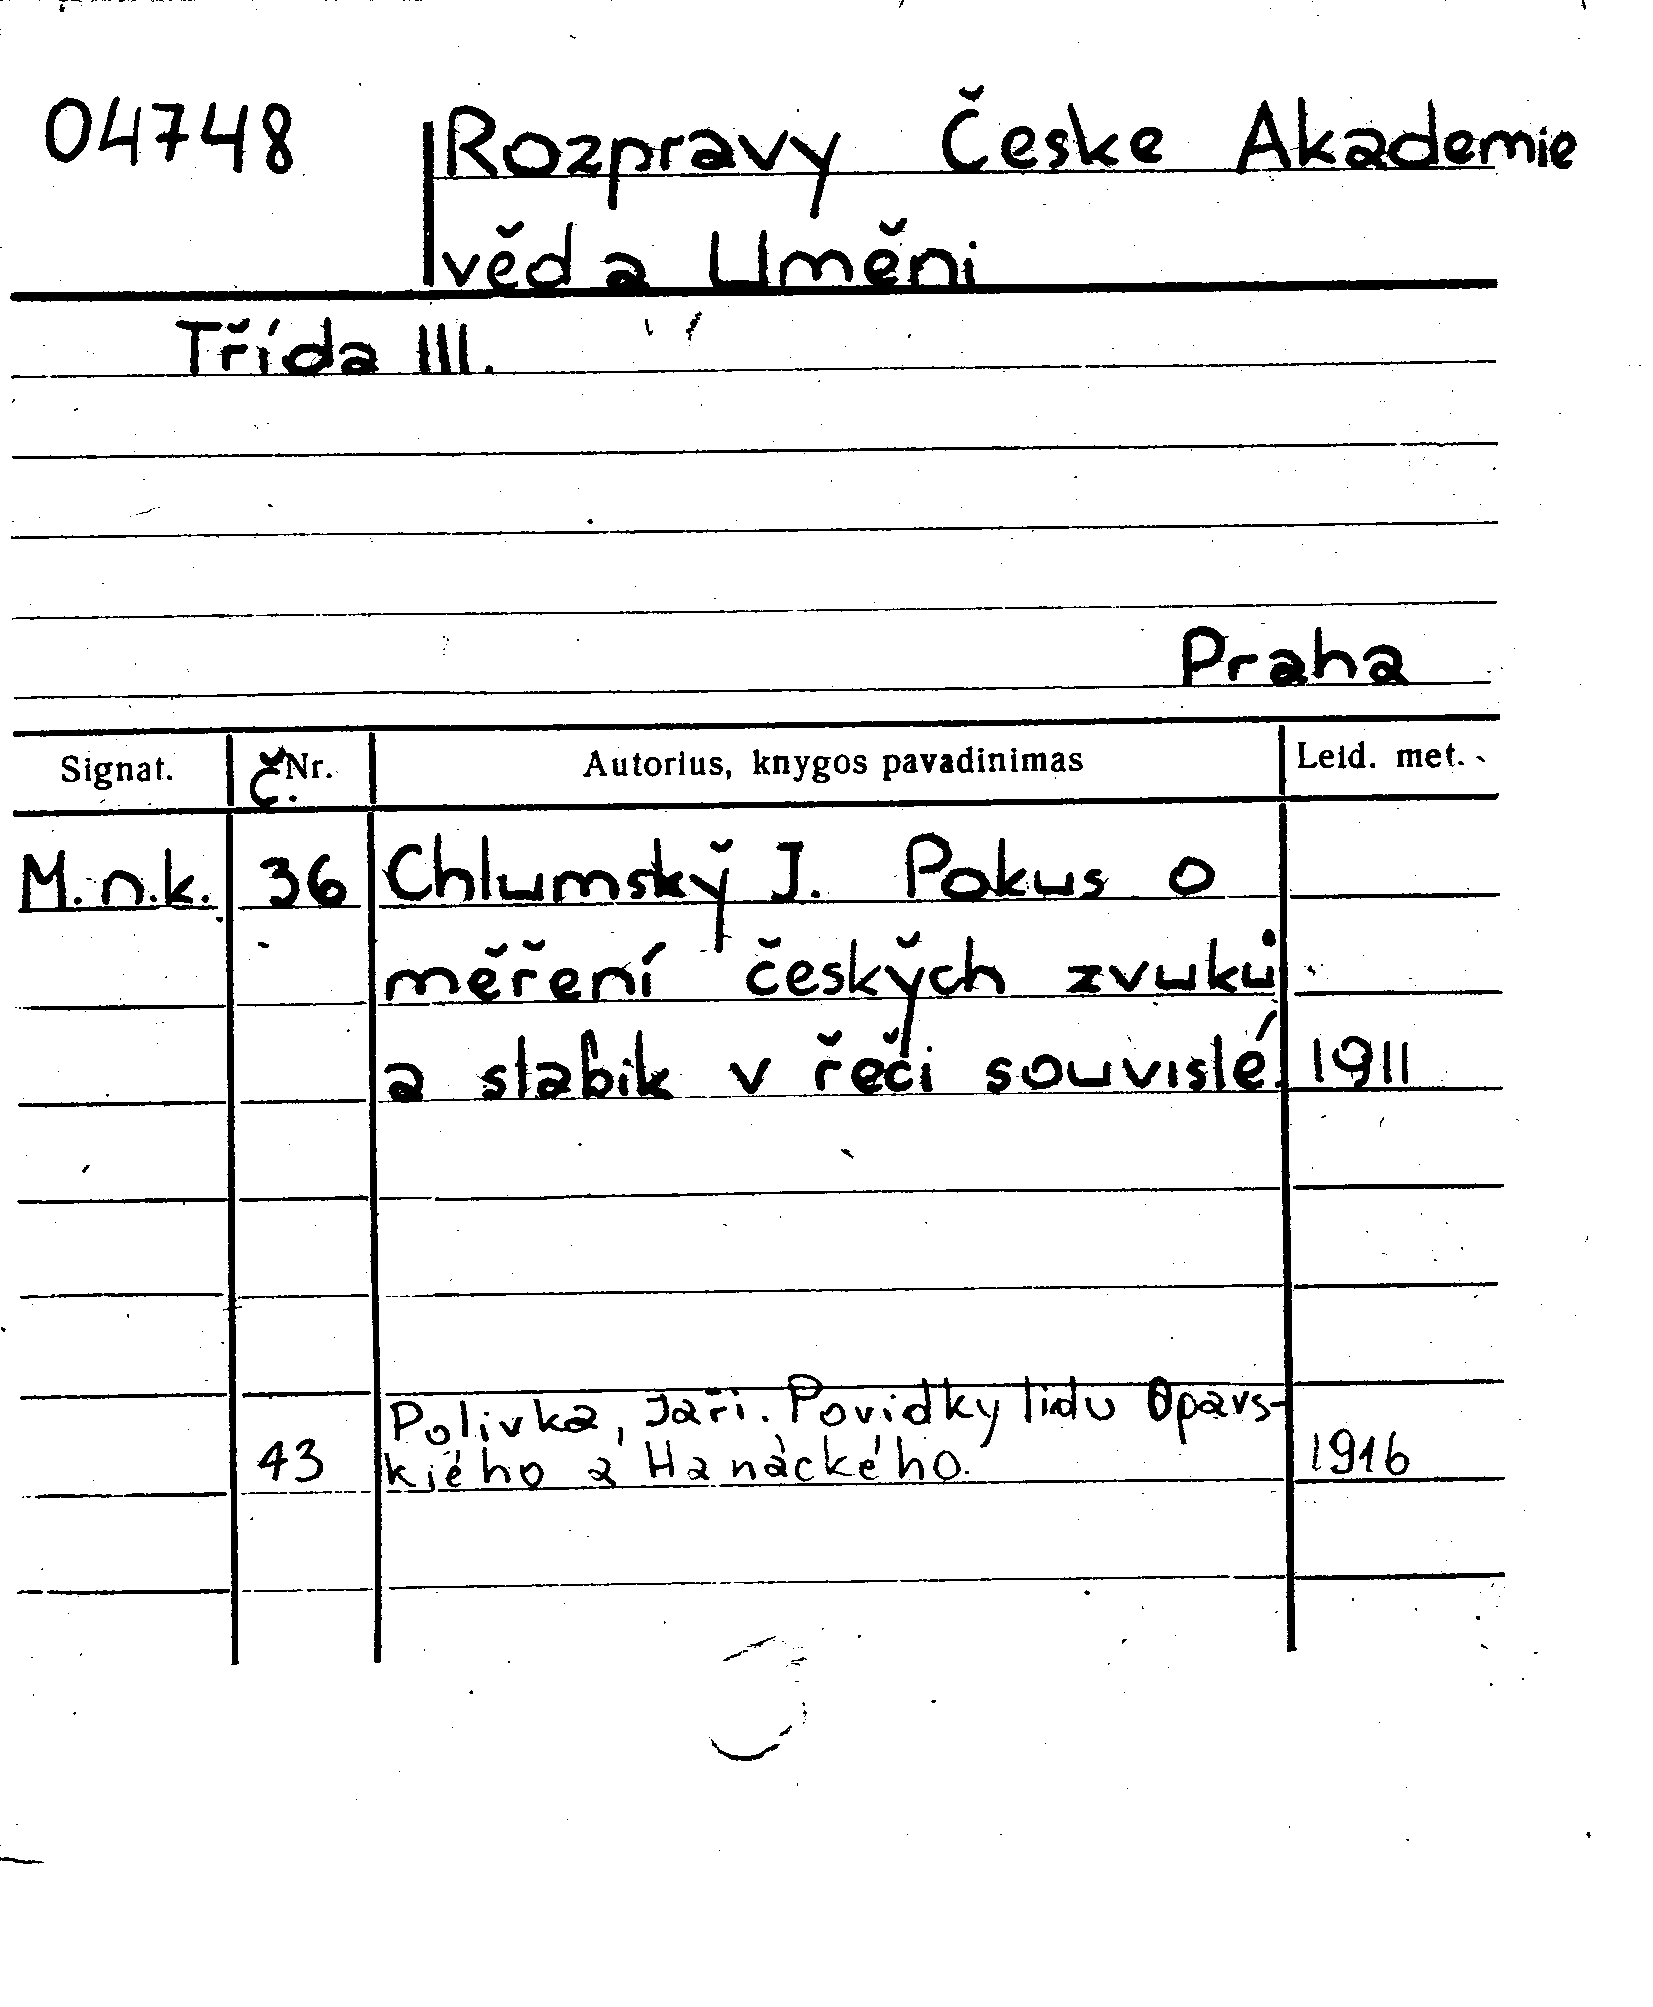 04748 Rozpravy Česke Akademie
věd a Uměni
Třída III.
Praha
Signat. Č. Nr. Autorius, knygos pavadinimas Leid. met.
M.n.k. 36 Chlumský J. Pokus o
měření českých zvuků
a slabik v řeči souvislé. 1911
Polivka, Jaři. Povidky lidu Opavs-
43 kiého a Hanáckého. 1916